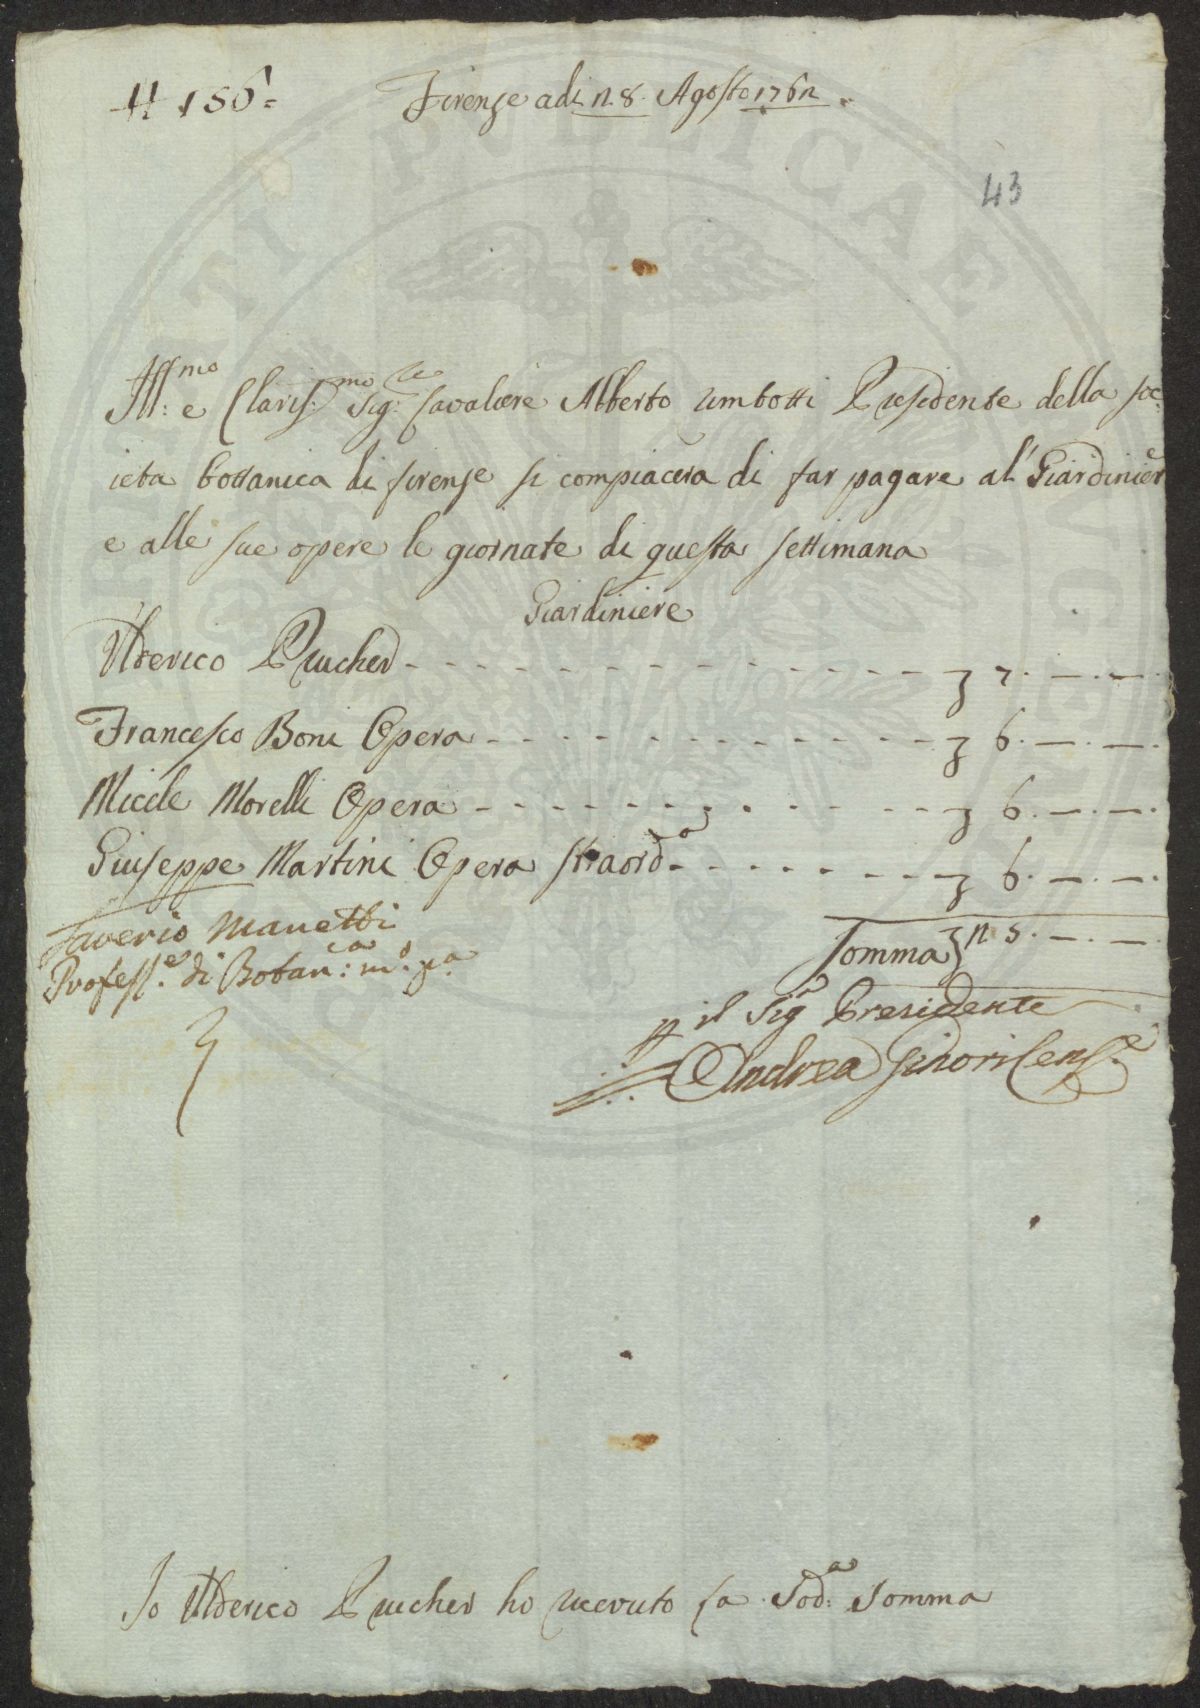 # 156=
Firenze adi 28. Agosto 1762.
43
Ill:mo e Claris:mo Sig:re Cavaliere Alberto Rimbotti Presidente della soc:
ieta bottanica di firenze si compiacera di far pagare al' Giardiniere
e alle sue opere le giornate di questa settimana
Giardiniere
Ulderico Prucher - - - - - - - - - - - - - - - - 7. — . — .
Francesco Boni Opera - - - - - - - - - - - - - 6. — . — .
Micele Morelli Opera - - - - - - - - - - - - - 6. — . — .
Giuseppe Martini Opera Straord:a - - - - - - - - 6. — . — .
Somma 25. — . —
Saverio Manetti
Profess:e di Botan:ca m:o p:a
p il Sig:r Presidente
Andrea Ginori Cens:e
Io Ulderico Prucher ho riceuto la Sod:a Somma
PUBLICAE